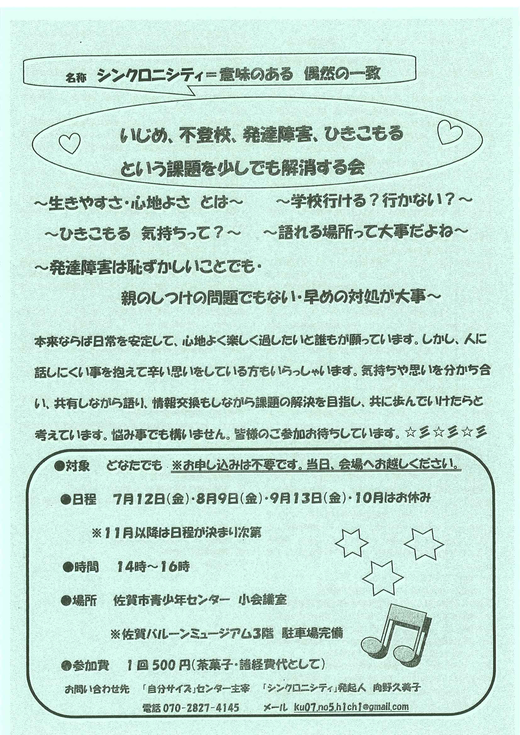 名称 シンクロニシティ=意味のある 偶然の一致
いじめ、不登校、発達障害、ひきこもる
という課題を少しでも解消する会
～生きやすさ・心地よさ とは～ ～学校行ける？行かない？～
～ひきこもる 気持ちって？～ ～語れる場所って大事だよね～
～発達障害は恥ずかしいことでも・
親のしつけの問題でもない・早めの対処が大事～
本来ならば日常を安定して、心地よく楽しく過したいと誰もが願っています。しかし、人に
話しにくい事を抱えて辛い思いをしている方もいらっしゃいます。気持ちや思いを分かち合
い、共有しながら語り、情報交換もしながら課題の解決を目指し、共に歩んでいけたらと
考えています。悩み事でも構いません。皆様のご参加お待ちしています。☆彡☆彡☆彡
●対象 どなたでも ※お申し込みは不要です。当日、会場へお越しください。
●日程 7月12日(金)・8月9日(金)・9月13日(金)・10月はお休み
※11月以降は日程が決まり次第
●時間 14時～16時
●場所 佐賀市青少年センター 小会議室
※佐賀バルーンミュージアム3階 駐車場完備
●参加費 1回500円(茶菓子・諸経費代として)
お問い合わせ先 「自分サイズ」センター主宰 「シンクロニシティ」発起人 向野久美子
電話070-2827-4145 メール ku07.no5.h1ch1@gmail.com